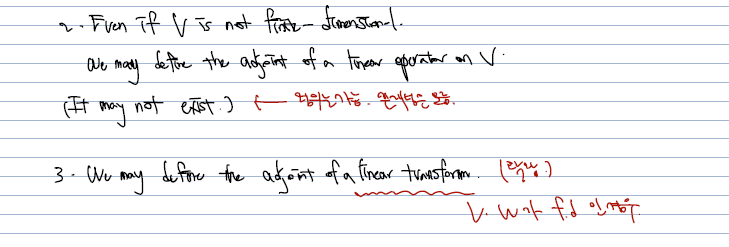 2. Even if V is not finite-dimensional.
we may define the adjoint of a linear operator on V.
(It may not exist.) ← 정의는 가능. 존재성은 모름.
3. We may define the adjoint of a linear transform. (확장.)
V. W가 f.d 인 경우.